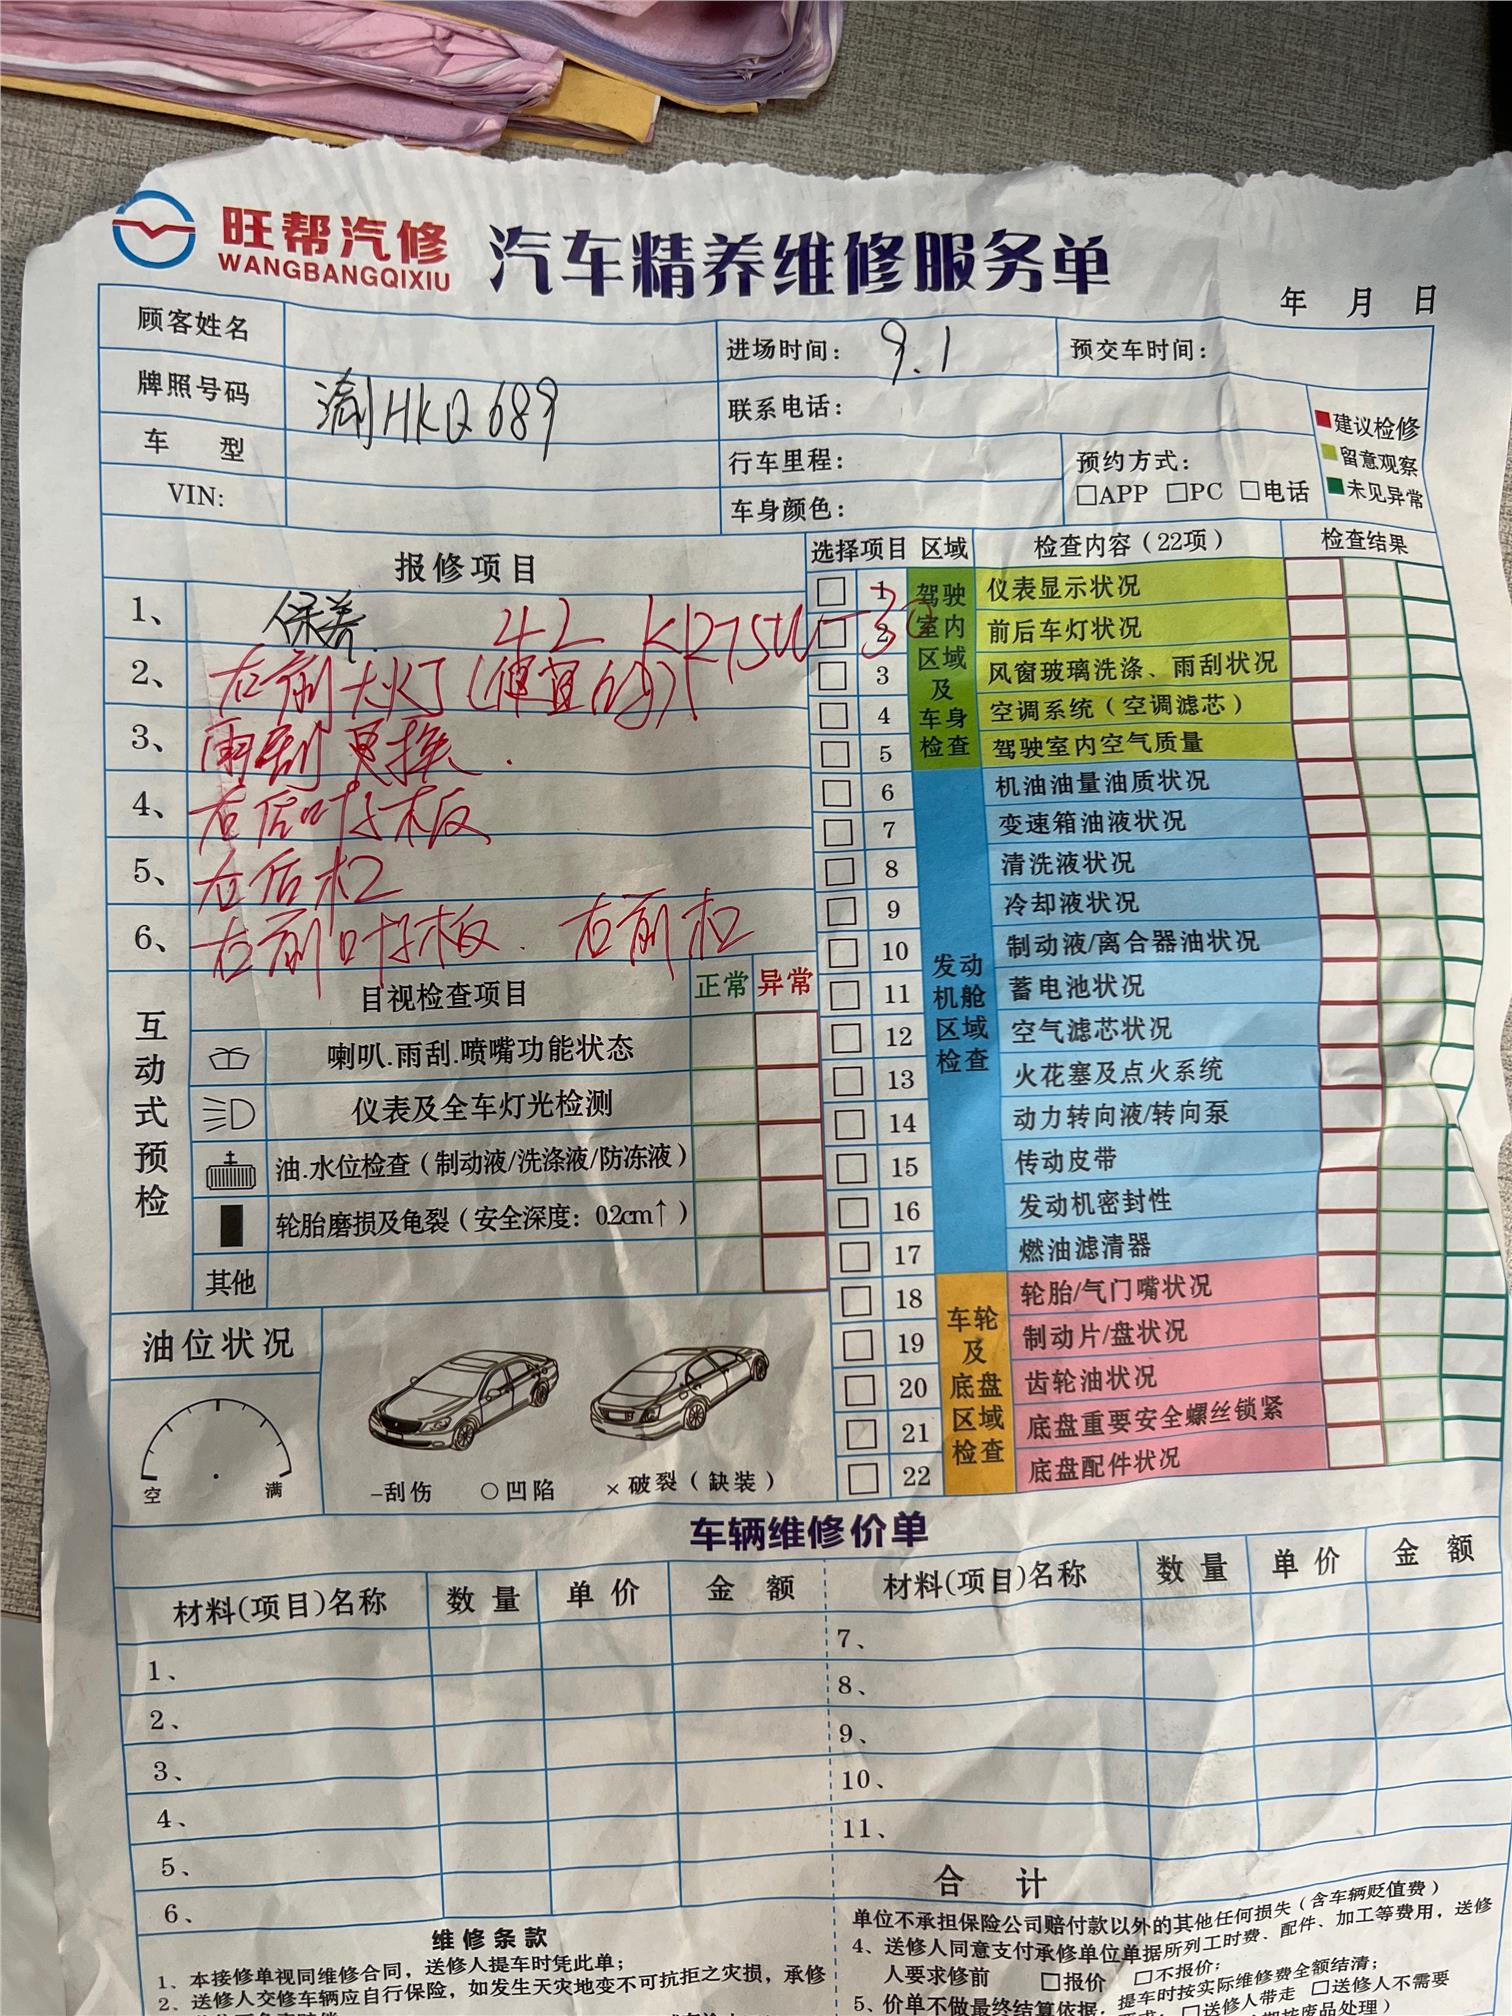 旺帮汽修
WANGBANGQIXIU
汽车精养维修服务单
年 月 日
顾客姓名
进场时间: 9.1
预交车时间:
牌照号码 渝HKQ689
联系电话:
车 型
行车里程:
预约方式:
□APP □PC □电话
VIN:
车身颜色:
建议检修
留意观察
未见异常
报修项目
1、 保养 4L KR75W-30
2、 右前大灯(便宜的)
3、 雨刮更换.
4、 右后叶子板
5、 右后杠
6、 右前叶子板. 右前杠
选择项目 区域 检查内容(22项) 检查结果
驾驶室内区域及车身检查
1 仪表显示状况
2 前后车灯状况
3 风窗玻璃洗涤、雨刮状况
4 空调系统(空调滤芯)
5 驾驶室内空气质量
发动机舱区域检查
6 机油油量油质状况
7 变速箱油液状况
8 清洗液状况
9 冷却液状况
10 制动液/离合器油状况
11 蓄电池状况
12 空气滤芯状况
13 火花塞及点火系统
14 动力转向液/转向泵
15 传动皮带
16 发动机密封性
17 燃油滤清器
车轮及底盘区域检查
18 轮胎/气门嘴状况
19 制动片/盘状况
20 齿轮油状况
21 底盘重要安全螺丝锁紧
22 底盘配件状况
互动式预检
目视检查项目 正常 异常
喇叭.雨刮.喷嘴功能状态
仪表及全车灯光检测
油.水位检查(制动液/洗涤液/防冻液)
轮胎磨损及龟裂(安全深度: 0.2cm↑)
其他
油位状况
空 满
-刮伤 ○凹陷 ×破裂(缺装)
车辆维修价单
材料(项目)名称 数量 单价 金额 材料(项目)名称 数量 单价 金额
1、
2、
3、
4、
5、
6、
7、
8、
9、
10、
11、
合 计
维修条款
1、本接修单视同维修合同，送修人提车时凭此单；
2、送修人交修车辆应自行保险，如发生天灾地变不可抗拒之灾损，承修
单位不承担保险公司赔付款以外的其他任何损失(含车辆贬值费)
4、送修人同意支付承修单位单据所列工时费、配件、加工等费用，送修
人要求修前 □报价 □不报价:
提车时按实际维修费全额结清；
5、价单不做最终结算依据；
□送修人带走 □送修人不需要